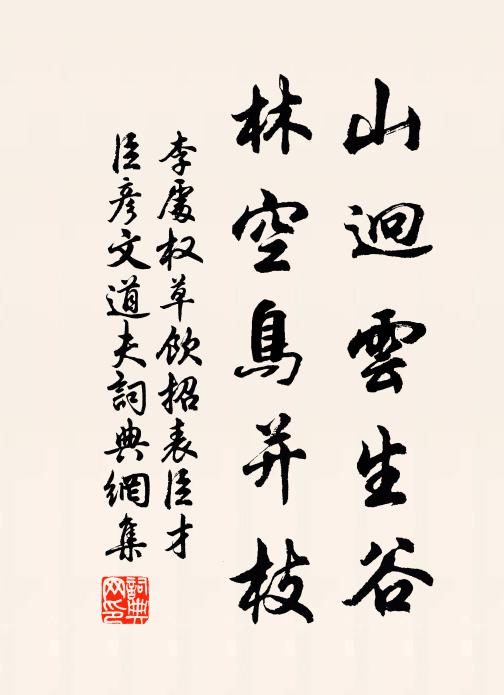 山迥雲生谷
林空鳥并枝
李處权草飲招表臣才
臣彥文道夫詞典網集
詞典網印